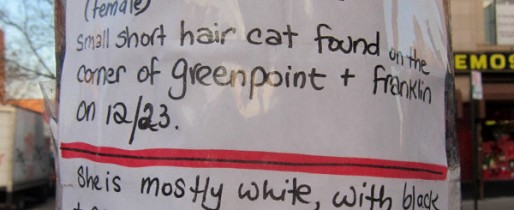 (female)
small short hair cat found on the
corner of greenpoint + franklin
on 12/23.
She is mostly white, with black
EMOS